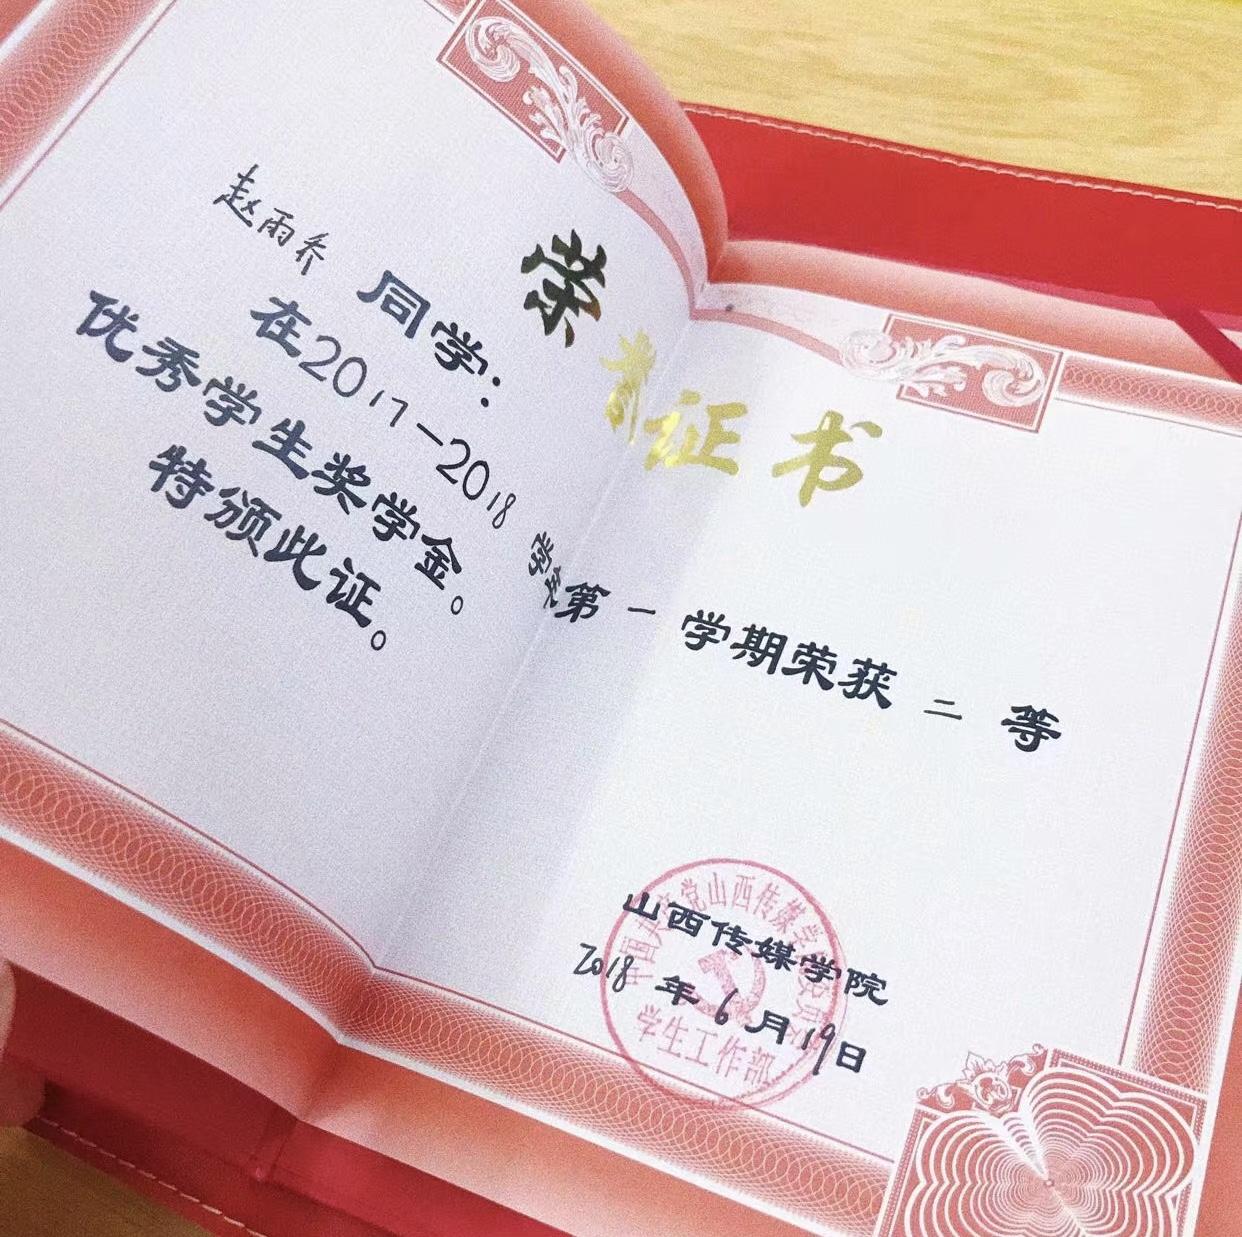 荣誉证书
赵雨乔 同学：
在2017-2018学年第一学期荣获二等
优秀学生奖学金。
特颁此证。
山西传媒学院
2018年6月19日
中国共产党山西传媒学院委员会
学生工作部